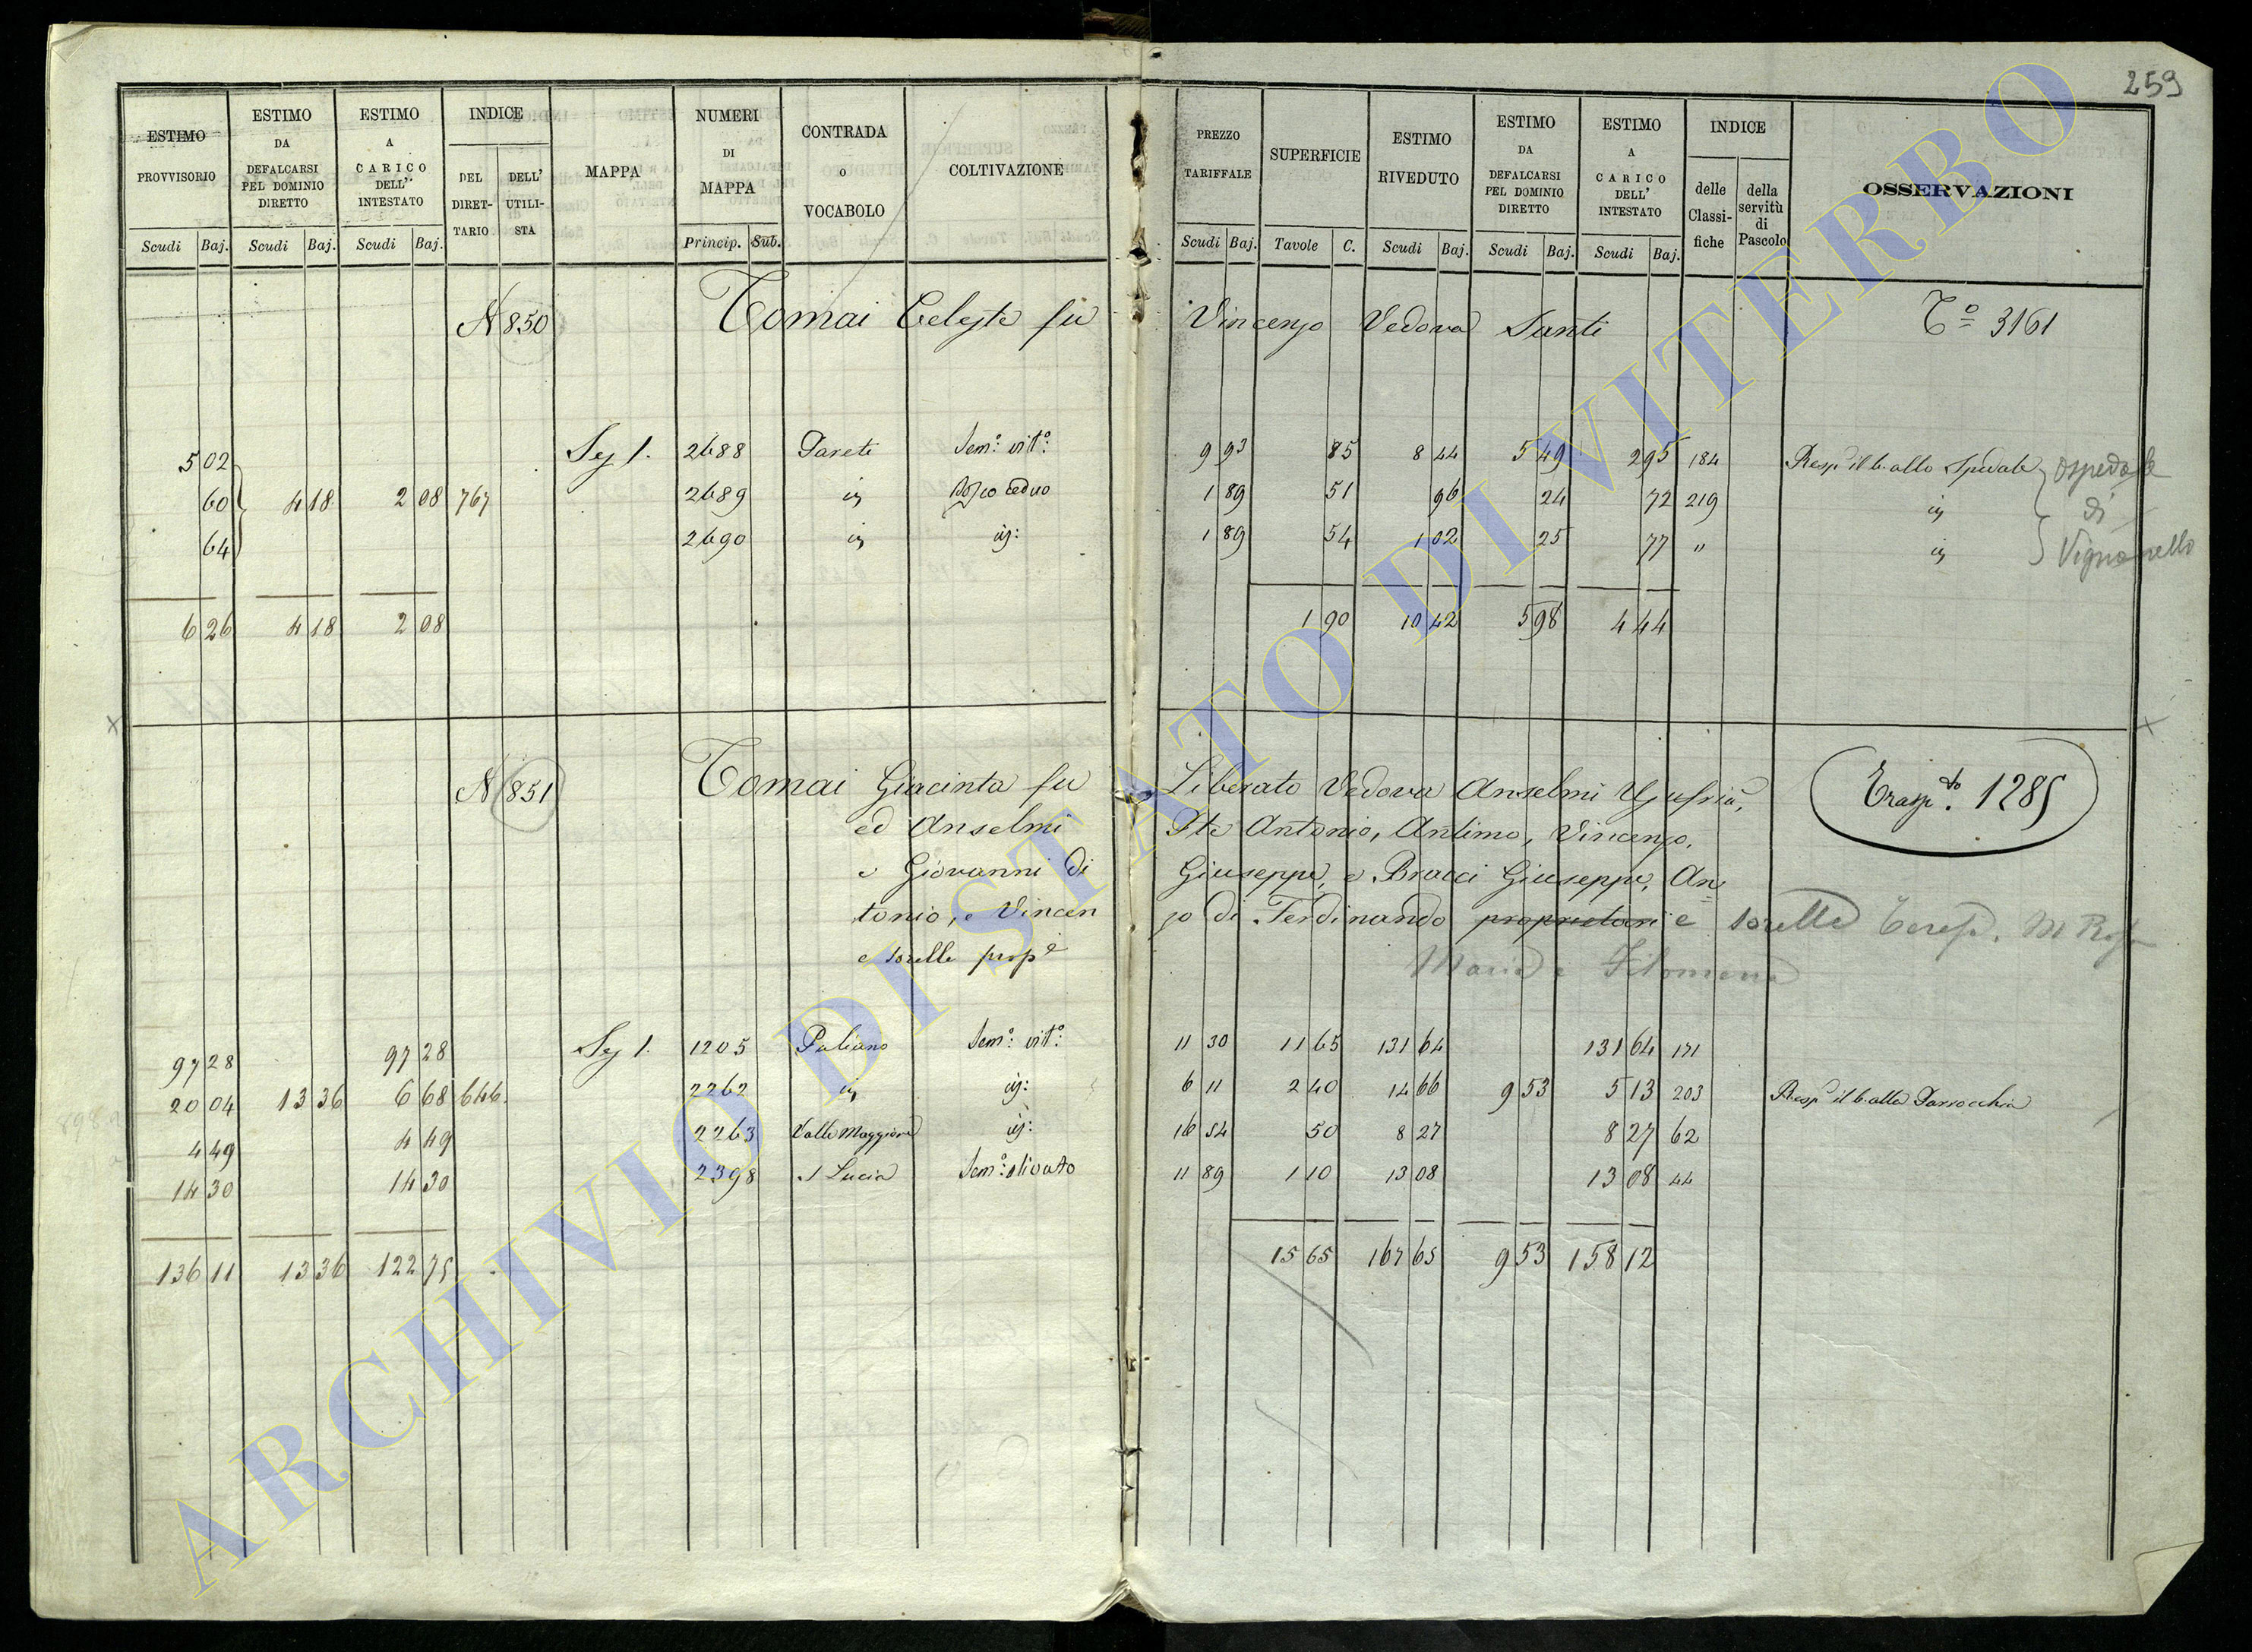 259
ESTIMO PROVVISORIO
ESTIMO DA DEFALCARSI PEL DOMINIO DIRETTO
ESTIMO A CARICO DELL' INTESTATO
INDICE
DEL DIRETTARIO
DELL' UTILISTA
MAPPA
NUMERI DI MAPPA
CONTRADA o VOCABOLO
COLTIVAZIONE
PREZZO TARIFFALE
SUPERFICIE
ESTIMO RIVEDUTO
ESTIMO DA DEFALCARSI PEL DOMINIO DIRETTO
ESTIMO A CARICO DELL' INTESTATO
INDICE
delle Classifiche
della servitù di Pascolo
OSSERVAZIONI
Scudi Baj. Scudi Baj. Scudi Baj. Princip. Sub. Scudi Baj. Tavole C. Scudi Baj. Scudi Baj. Scudi Baj.
N 850 Tomai Celeste fu Vincenzo Vedova Santi To 3161
5 02 Sez 1. 2688 Pareti Sem.o vit.o 9 93 85 8 44 5 49 2 95 184 Resp il b. allo Spedale Ospedale
60 4 18 2 08 767 2689 id Bosco ceduo 1 89 51 96 24 72 219 id di
64 2690 id id: 1 89 54 1 02 25 77 " id Vignanello
6 26 4 18 2 08 1 90 10 42 5 98 4 44
N 851 Tomai Giacinta fu Liberato Vedova Anselmi Trasp.to 1285
ed Anselmi Antonio, Antimo, Vincenzo,
e Giovanni di Giuseppe, e Bracci Giuseppe, An
tonio, e Vincen zo di Ferdinando proprietari e sorelle Teresa, M Rosa
e sorelle prop.e Maria e Filomena
97 28 97 28 Sez 1. 1205 Paliano Sem.o vit.o 11 30 11 65 131 64 131 64 171
20 04 13 36 6 68 646. 2262 id id: 6 11 2 40 14 66 9 53 5 13 203 Resp il b. alla Parrocchia
4 49 4 49 2263 Valle Maggiore id: 16 54 50 8 27 8 27 62
14 30 14 30 2398 S Lucia Sem.o olivato 11 89 1 10 13 08 13 08 44
136 11 13 36 122 75 15 65 167 65 9 53 158 12
ARCHIVIO DI STATO DI VITERBO